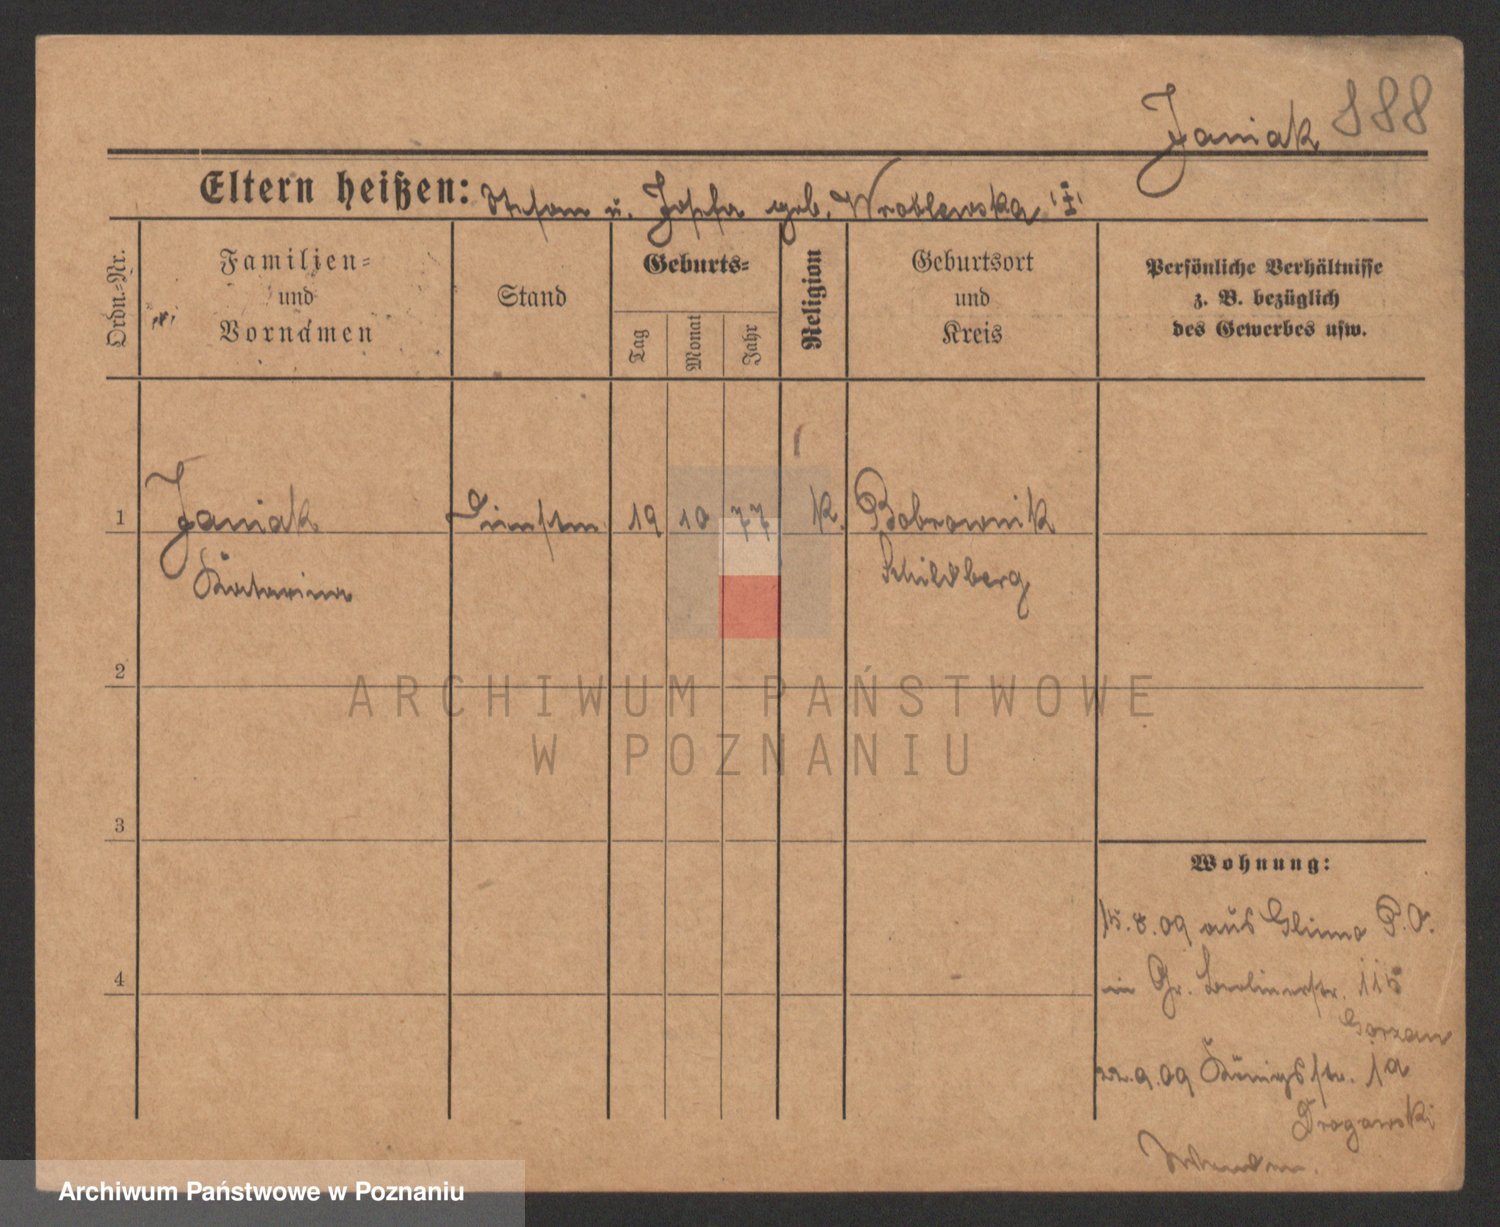 Janiak 888
Eltern heißen: Stefan u. Josefa geb. Wroblewska
Ordn.-Nr.
Familien-
und
Vornamen
Stand
Geburts-
Tag
Monat
Jahr
Religion
Geburtsort
und
Kreis
Persönliche Verhältnisse
z. B. bezüglich
des Gewerbes usw.
1 Janiak 19 10 77 K. Bobrownik
Katarina Schildberg
2
3
4
Wohnung:
15.8.09 aus Glinno P.O.
in Gr. Berlinerstr. 115
22.9.09 Königsstr. 1a
ARCHIWUM PAŃSTWOWE
W POZNANIU
Archiwum Państwowe w Poznaniu